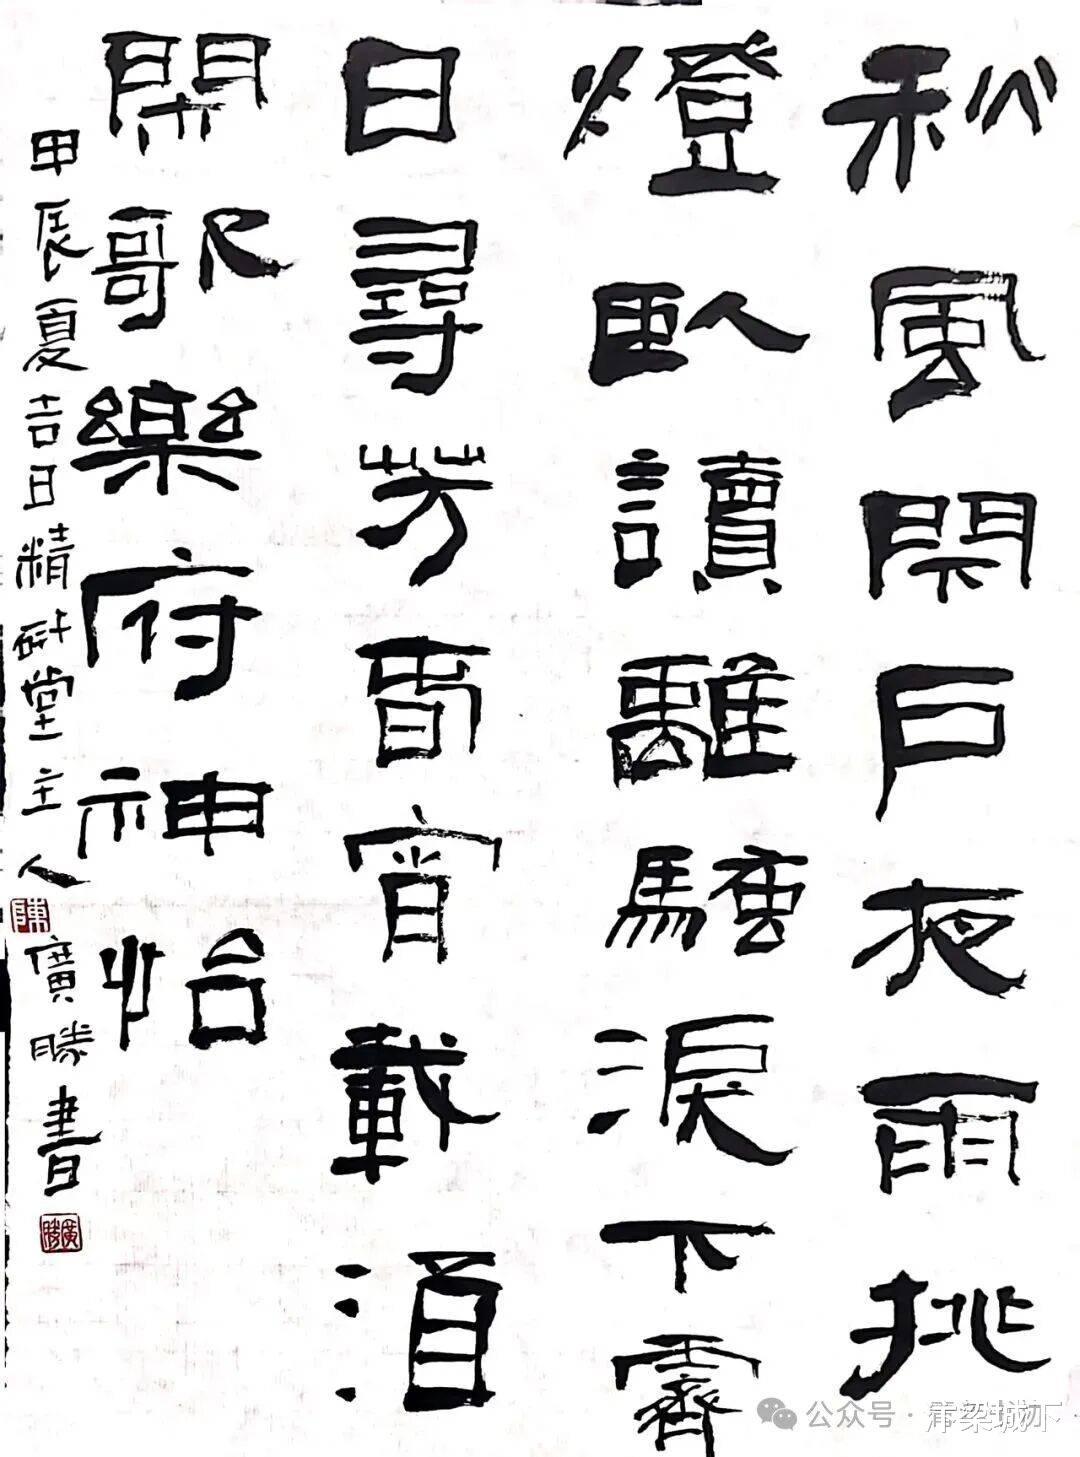 秋風閉戶夜雨挑
燈臥讀離騷淚下霽
日尋芳春宵載酒
閑歌樂府神怡
甲辰夏吉日精研堂主人陳廣勝書
廣勝
公众号